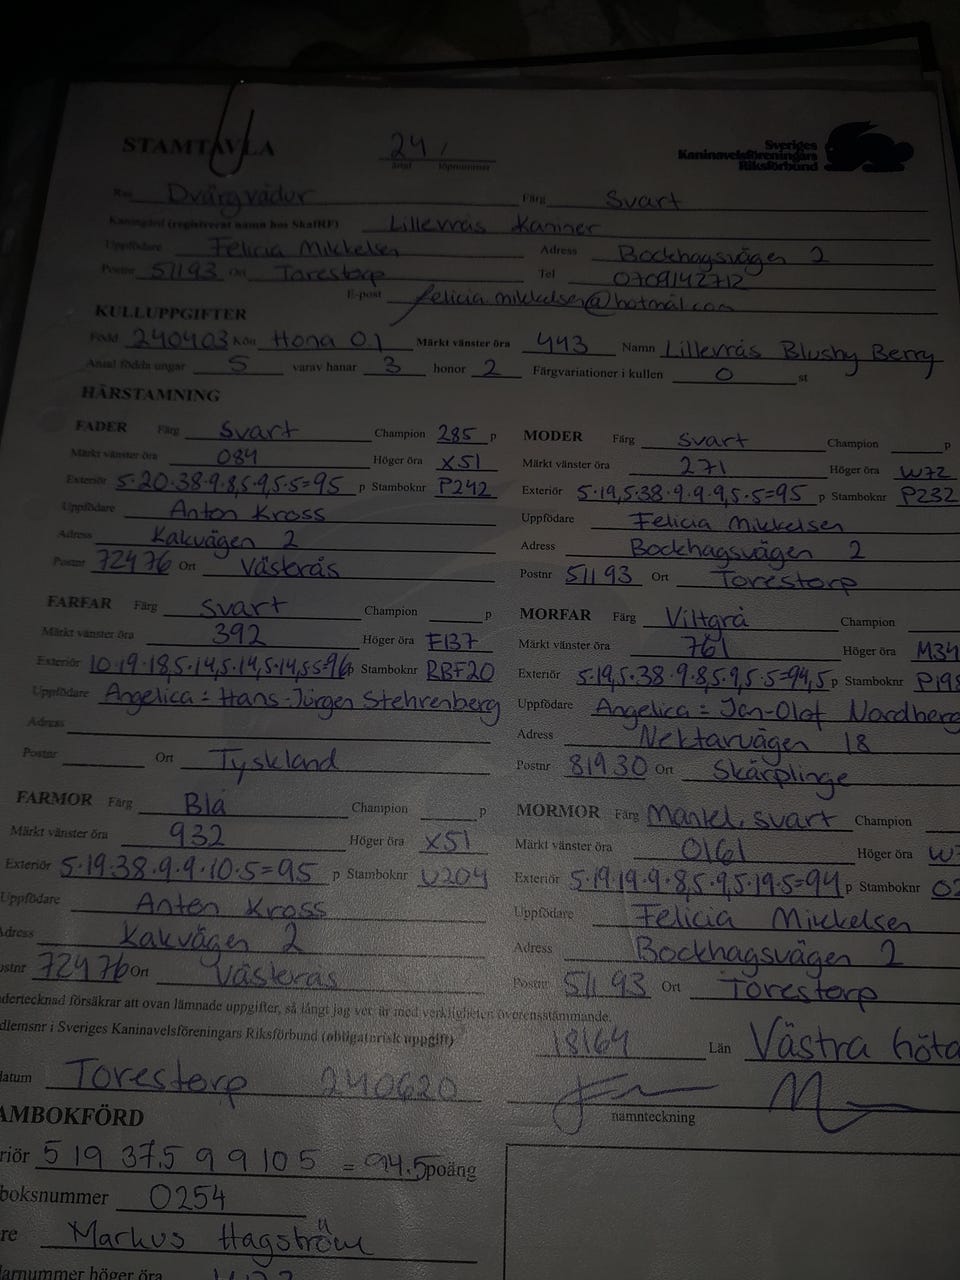 STAMTAVLA 24 /
antal löpnummer
Sveriges
Kaninavelsföreningars
Riksförbund
Ras Dvärgvädur Färg Svart
Kaningård (registrerat namn hos SkafRF) Lillevrås Kaniner
Uppfödare Felicia Mikkelsen Adress Bockhagsvägen 2
Postnr 51193 Ort Torestorp Tel 0709142712
E-post felicia.mikkelsen@hotmail.com
KULLUPPGIFTER
Född 240403 Kön Hona 0.1 Märkt vänster öra 443 Namn Lillevrås Blushy Berry
Antal födda ungar 5 varav hanar 3 honor 2 Färgvariationer i kullen 0 st
HÄRSTAMNING
FADER Färg Svart Champion 285 p
Märkt vänster öra 084 Höger öra X51
Exteriör 5·20·38·9·8,5·9,5·5=95 p Stamboknr P242
Uppfödare Anton Kross
Adress Kakvägen 2
Postnr 72476 Ort Västerås
MODER Färg Svart Champion p
Märkt vänster öra 271 Höger öra W72
Exteriör 5·19,5·38·9·9·9,5·5=95 p Stamboknr P232
Uppfödare Felicia Mikkelsen
Adress Bockhagsvägen 2
Postnr 51193 Ort Torestorp
FARFAR Färg Svart Champion p
Märkt vänster öra 392 Höger öra F137
Exteriör 10·19·18,5·14,5·14,5·14,5·5=96 p Stamboknr RBF20
Uppfödare Angelica = Hans-Jürgen Stehrenberg
Adress
Postnr Ort Tyskland
MORFAR Färg Viltgrå Champion
Märkt vänster öra 761 Höger öra M34
Exteriör 5·19,5·38·9·8,5·9,5·5=94,5 p Stamboknr P198
Uppfödare Angelica = Jan-Olof Nordberg
Adress Nektarvägen 18
Postnr 81930 Ort Skärplinge
FARMOR Färg Blå Champion p
Märkt vänster öra 932 Höger öra X51
Exteriör 5·19·38·9·9·10·5=95 p Stamboknr U204
Uppfödare Anton Kross
Adress Kakvägen 2
ostnr 72476 Ort Västerås
MORMOR Färg Mantel, svart Champion
Märkt vänster öra 0161 Höger öra W7
Exteriör 5·19·19·9·8,5·9,5·19·5=94 p Stamboknr 02
Uppfödare Felicia Mikkelsen
Adress Bockhagsvägen 2
Postnr 51193 Ort Torestorp
dertecknad försäkrar att ovan lämnade uppgifter, så långt jag vet, är med verkligheten överensstämmande.
dlemsnr i Sveriges Kaninavelsföreningars Riksförbund (obligatorisk uppgift) 18164 Län Västra höta
datum Torestorp 240620
namnteckning
AMBOKFÖRD
riör 5 19 37,5 9 9 10 5 = 94.5 poäng
boksnummer 0254
re Markus Hagström
larnummer höger öra